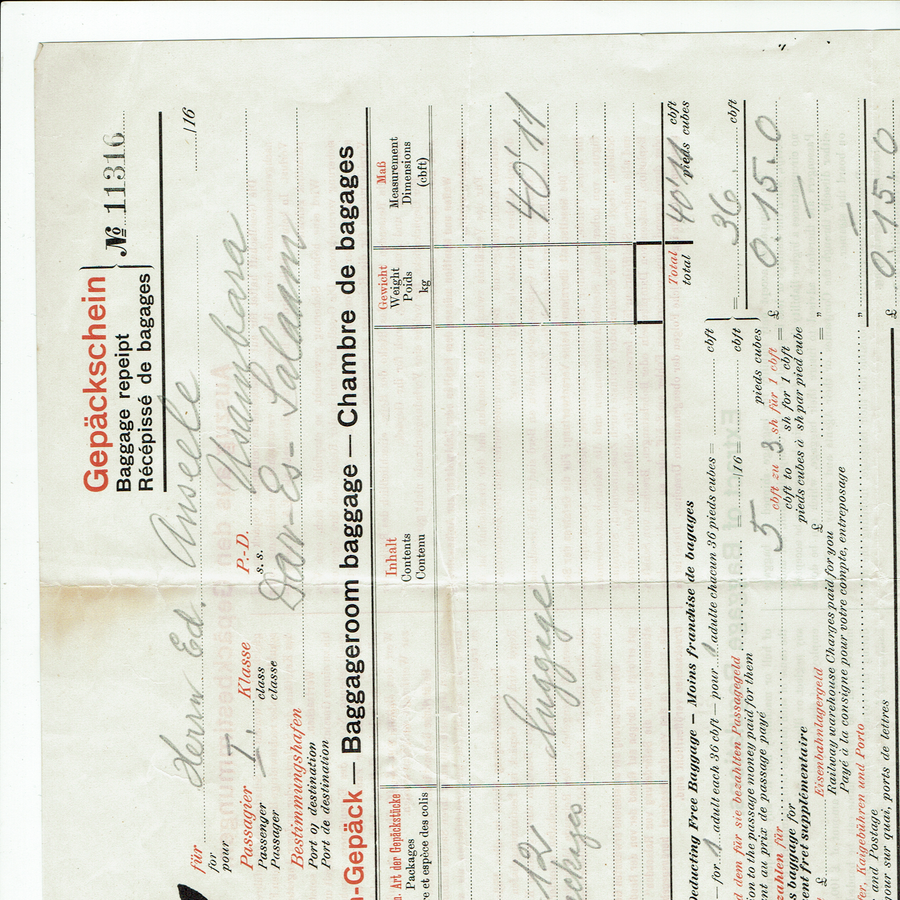 Gepäckschein
Baggage repeipt
Récépissé de bagages
№ 11316
für
for
pour
Herrn Ed. Ansele
/16
Passagier I. Klasse P.-D. Usambara
Passenger class s. s.
Passager classe
Bestimmungshafen Dar-Es-Salaam
Port of destination
Port de destination
-Gepäck — Baggageroom baggage — Chambre de bagages
Art der Gepäckstücke
Packages
re et espèce des colis
Inhalt
Contents
Contenu
Gewicht
Weight
Poids
kg
Maß
Measurement
Dimensions
(cbft)
12 luggage 40'11
Total
total
40'11 cbft
pieds cubes
Deducting Free Baggage — Moins franchise de bagages
— for 1 adult each 36 cbft — pour 1 adulte chacun 36 pieds cubes = cbft
/16 = cbft = 36 cbft
pieds cubes
dem für sie bezahlten Passagegeld 5 cbft zu 3 sh für 1 cbft = £ 0.15.0
ion to the passage money paid for them cbft to sh for 1 cbft
ent au prix de passage payé pieds cubes à sh par pied cube
zahlen für £ = " —
s baggage for
ent fret supplémentaire
£ Eisenbahnlagergeld " —
Railway warehouse Charges paid for you
Payé à la consigne pour votre compte, entreposage
fer, Kaigebühren und Porto
and Postage
pour sur quai, ports de lettres
£ 0.15.0